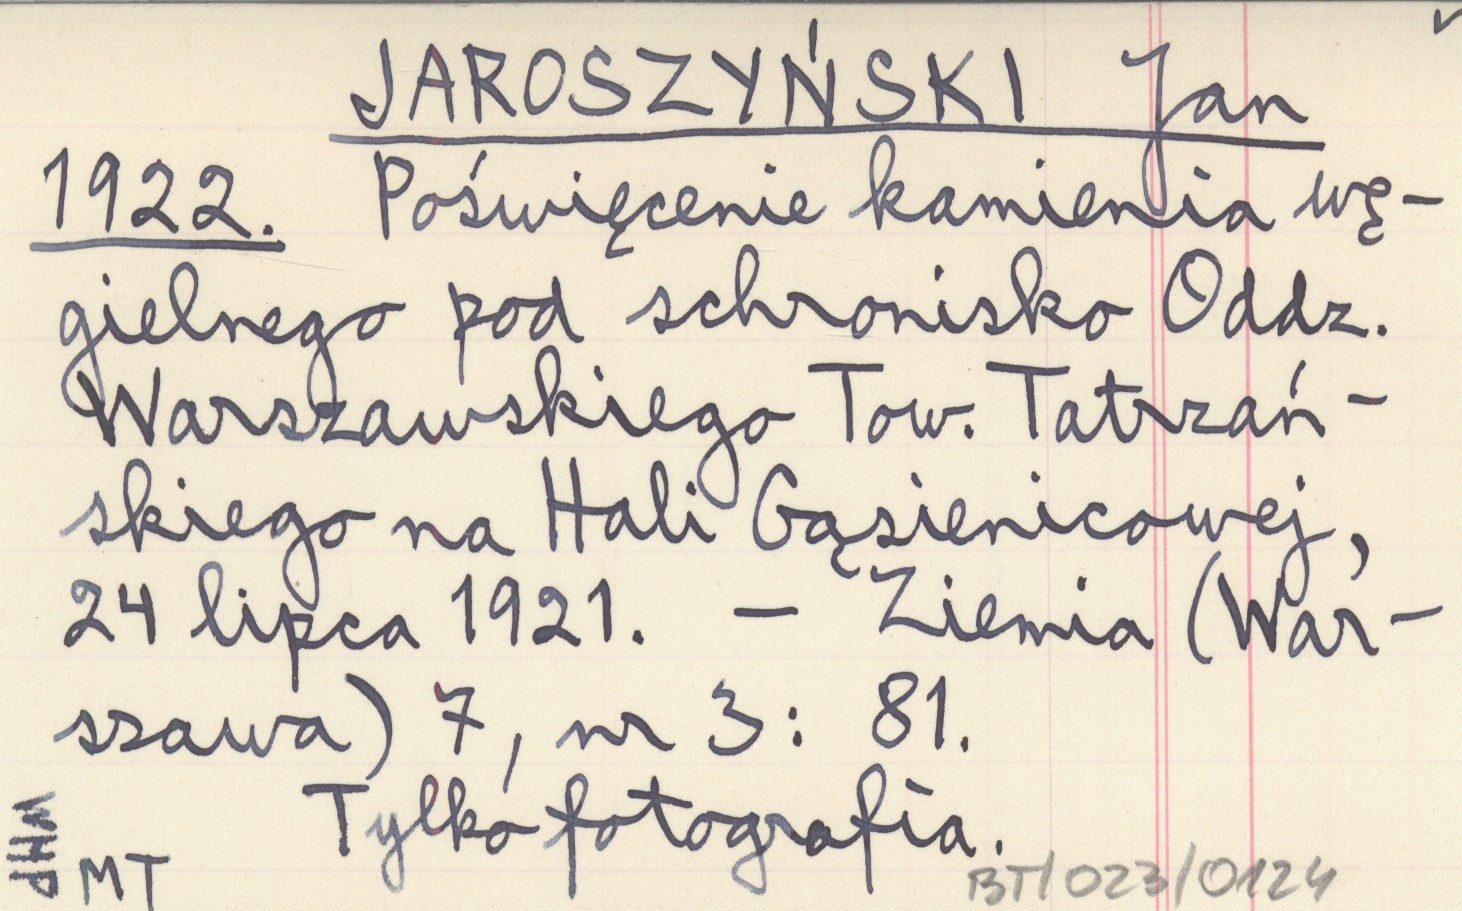 JAROSZYŃSKI Jan
1922. Poświęcenie kamienia wę-
gielnego pod schronisko Oddz.
Warszawskiego Tow. Tatrzań-
skiego na Hali Gąsienicowej,
24 lipca 1921. — Ziemia (War-
szawa) 7, nr 3: 81.
Tylko fotografia.
WHP
MT
BT/023/0124